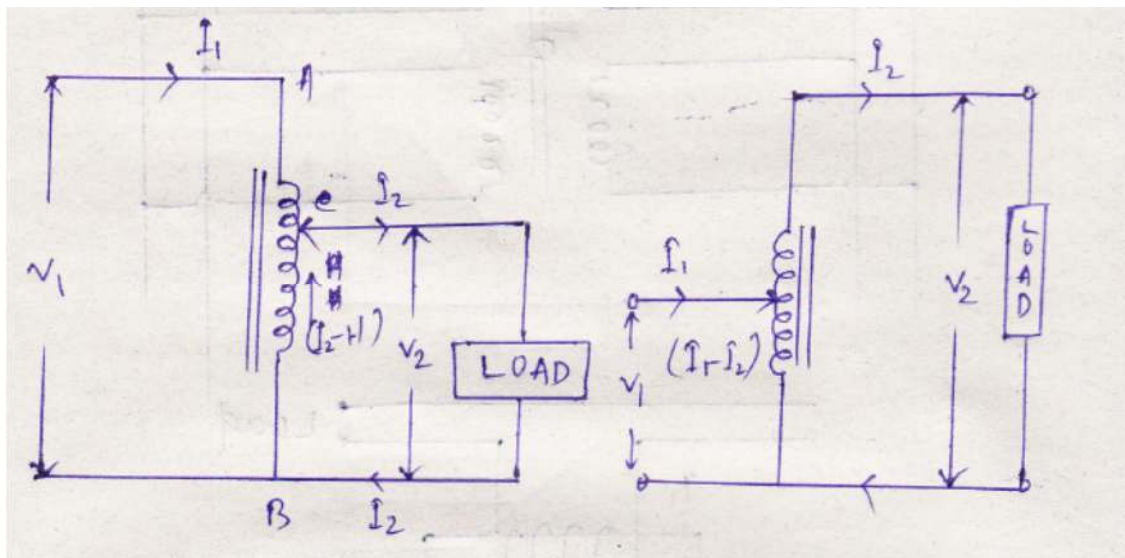 I₁
A
V₁
C
I₂
(I₂-I₁)
V₂
LOAD
B
I₂
I₂
I₁
V₁
(I₁-I₂)
V₂
LOAD